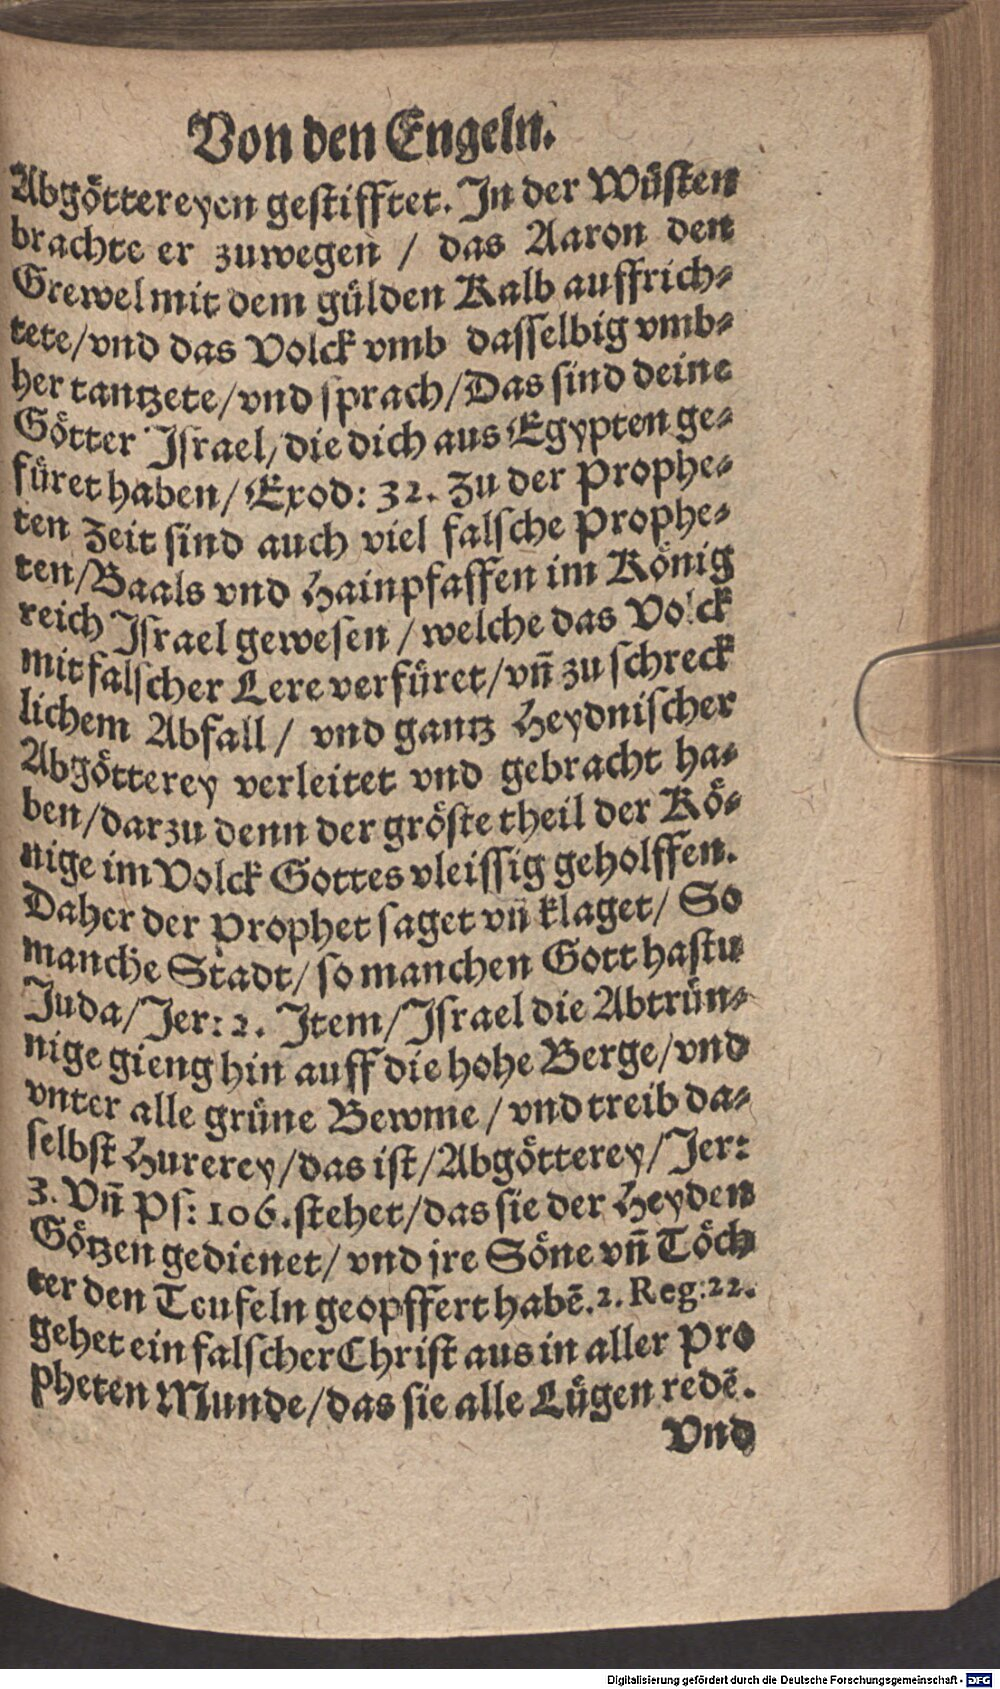 Von den Engeln.
Abgöttereyen gestifftet. In der Wüsten
brachte er zuwegen / das Aaron den
Grewel mit dem gülden Kalb auffrich-
tete/vnd das Volck vmb dasselbig vmb-
her tantzete/vnd sprach/Das sind deine
Götter Israel/die dich aus Egypten ge-
füret haben/Exod: 32. Zu der Prophe-
ten Zeit sind auch viel falsche Prophe-
ten/Baals vnd Hainpfaffen im König
reich Israel gewesen/welche das Volck
mit falscher Lere verfüret/vñ zu schreck
lichem Abfall/ vnd gantz Heydnischer
Abgötterey verleitet vnd gebracht ha-
ben/darzu denn der gröste theil der Kö-
nige im Volck Gottes vleissig geholffen.
Daher der Prophet saget vñ klaget/ So
manche Stadt/so manchen Gott hastu
Juda/Jer: 2. Item/Israel die Abtrün-
nige gieng hin auff die hohe Berge/vnd
vnter alle grüne Bewme/vnd treib da-
selbst Hurerey/das ist/Abgötterey/Jer:
3. Vñ Ps: 106. stehet/das sie der Heyden
Götzen gedienet/vnd jre Söne vñ Töch
ter den Teufeln geopffert habẽ. 2. Reg: 22.
gehet ein falscher Christ aus in aller Pro
pheten Munde/das sie alle Lügen redẽ.
Vnd
Digitalisierung gefördert durch die Deutsche Forschungsgemeinschaft - DFG